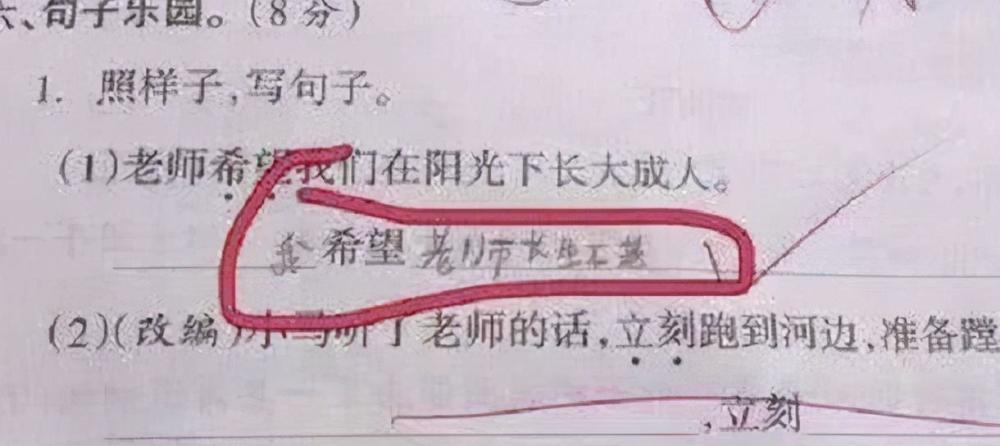 六、句子乐园。(8分)
1. 照样子,写句子。
(1)老师希望我们在阳光下长大成人。
我希望老师长生不老
(2)(改编)小马听了老师的话,立刻跑到河边,准备蹚
,立刻